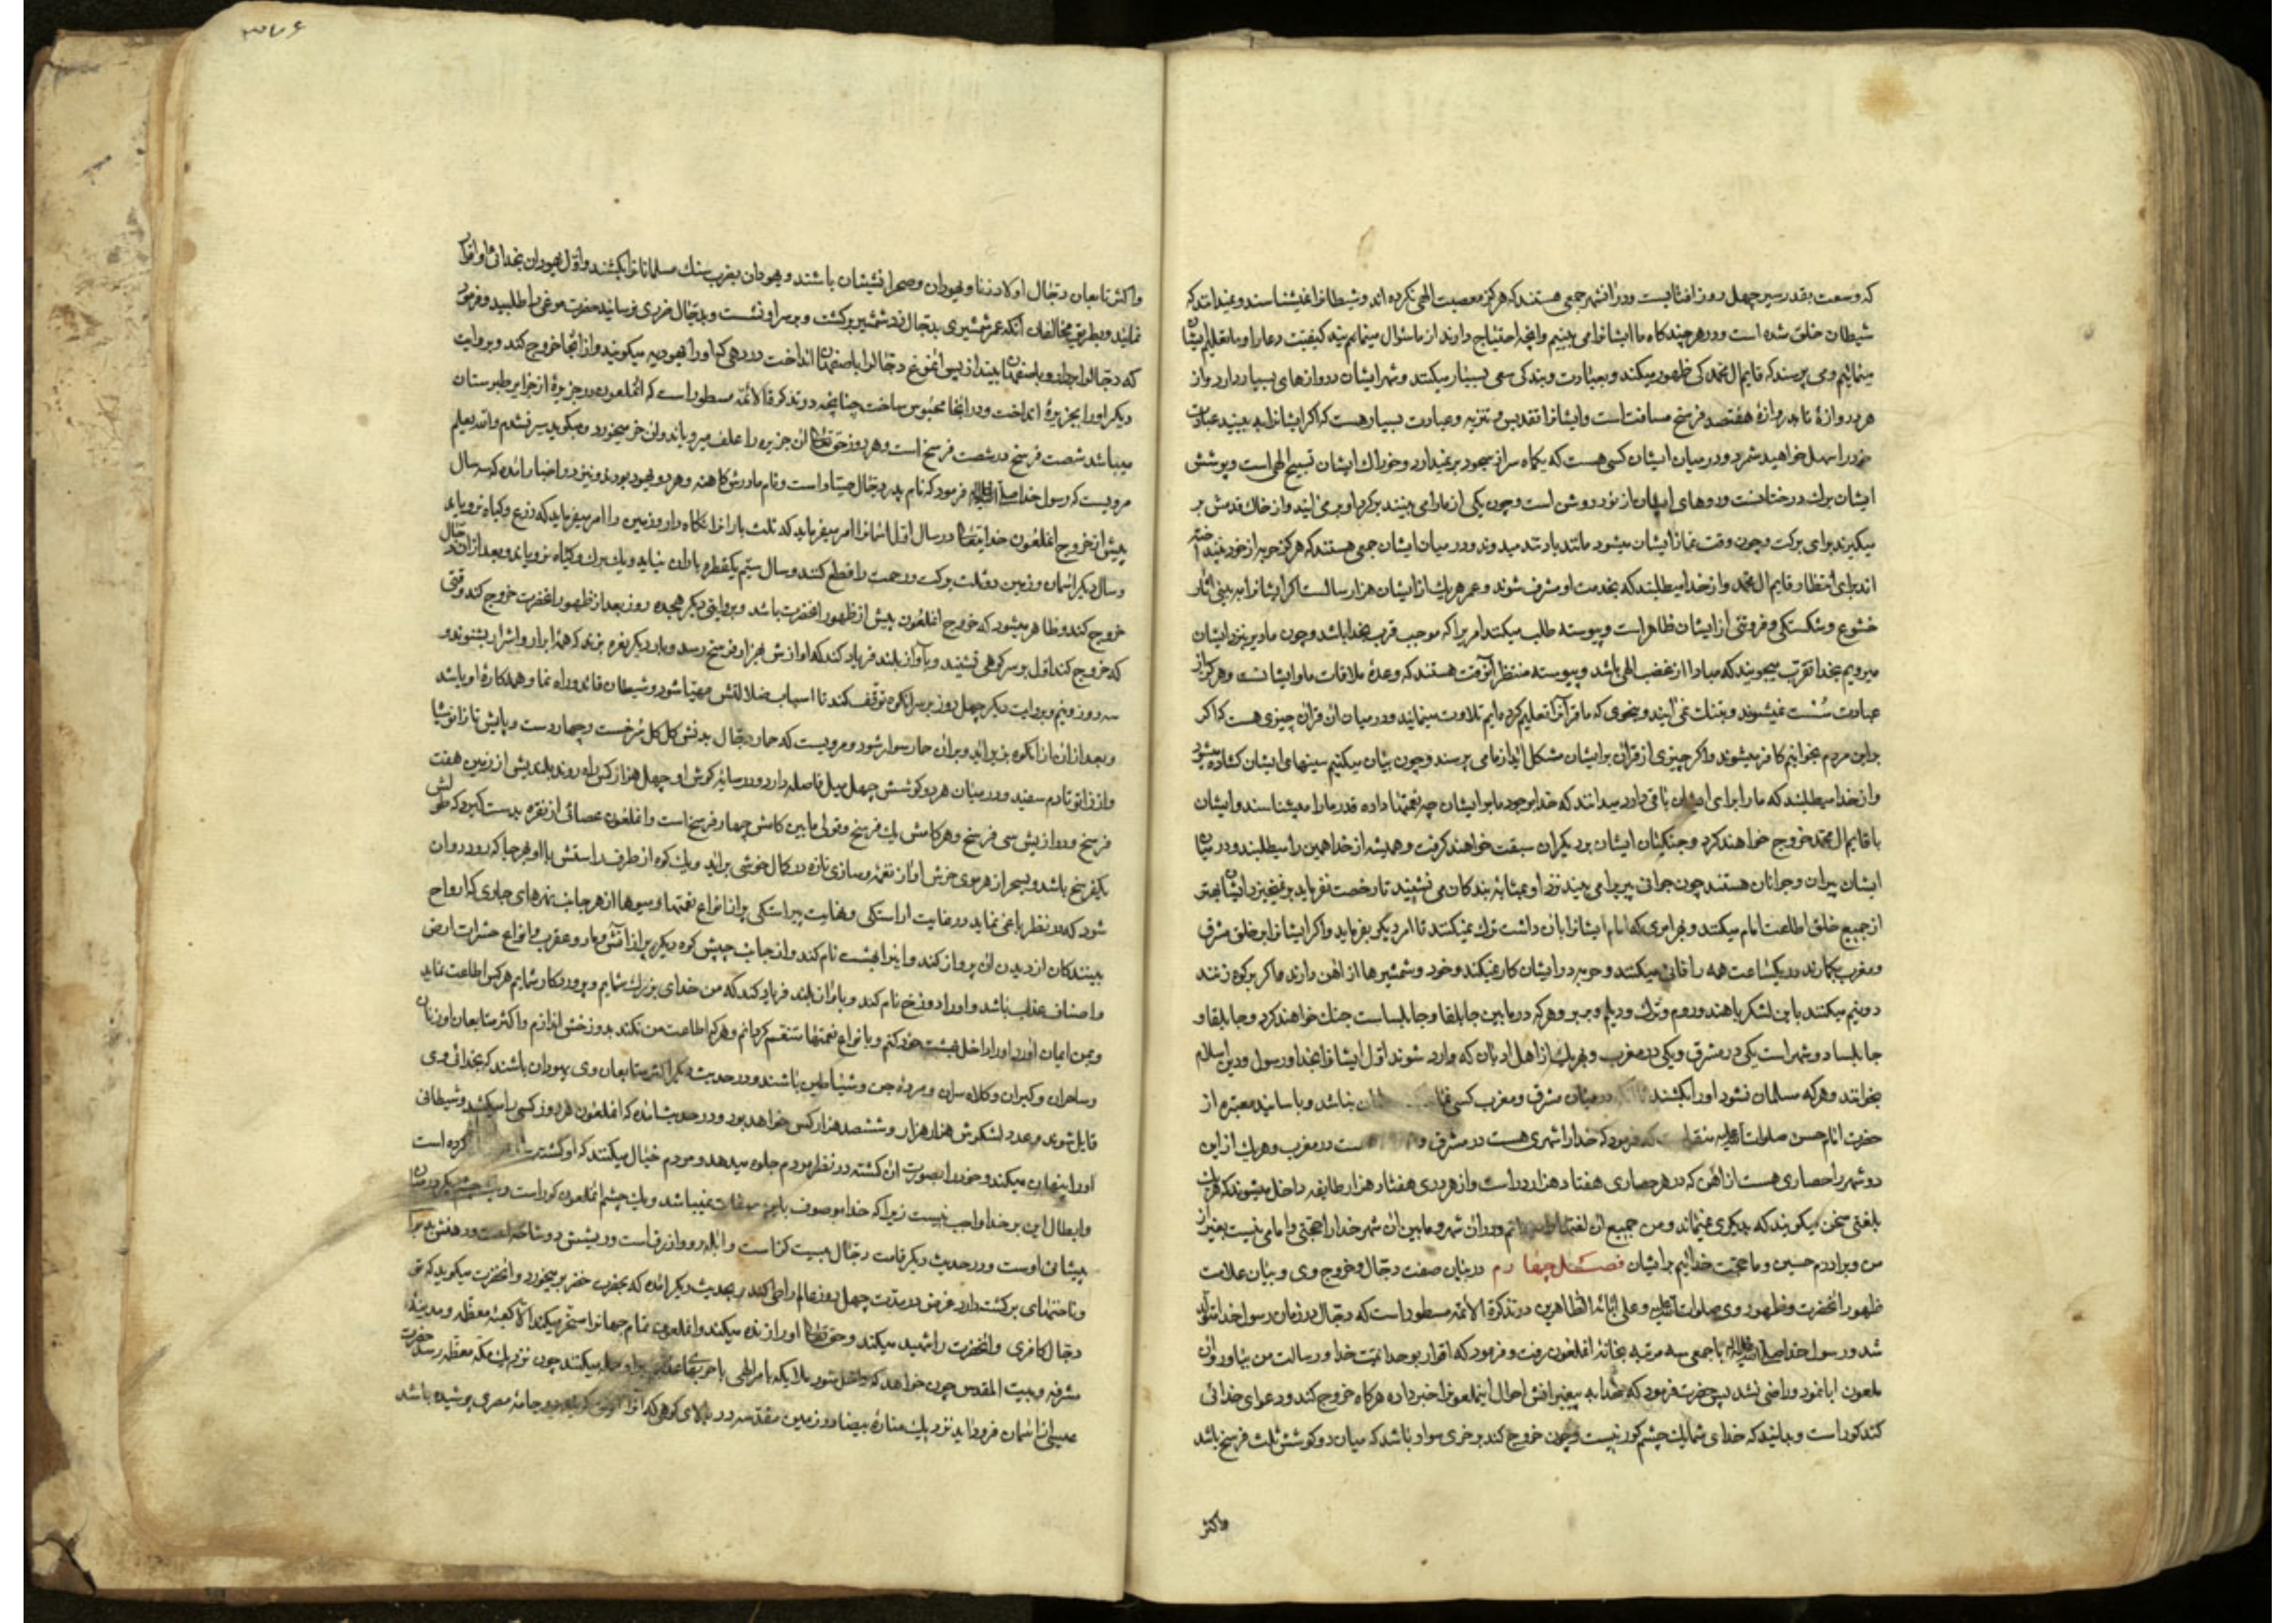 که وسعت بقدر سیر چهل روز افتابیست و در انشهر جمعی هستند که هرگز معصیت الهی نکرده اند و شیطانرا نمیشناسند و نمیدانند که
شیطان خلق شده است و در هر چند کاه ما ایشانرا می بینیم و انچه احتیاج دارند از ما سئوال مینمایند کیفیت دعا را و ما تعلیم ایشان
مینمائیم و می پرسند که قایم ال محمد کی ظهور میکند و بعبادت و بندکی سعی بسیار میکنند و شهر ایشان دروازهای بسیار دارد و از
هر دروازهٔ تا بدروازهٔ هفتصد فرسخ مسافت است و ایشانرا تقدیس و تنزیه و عبادت بسیار هست که اکر ایشانرا به بینید عبادت
خود را سهل خواهید شمرد و در میان ایشان کسی هست که یکماه سر از سجود بر نمیدارد و خوراک ایشان تسبیح الهی است و پوشش
ایشان برک درختانست و روهای ایشان از نور روشن است و چون یکی از ما را می بینند بر کرد او بر می ایند و از خاک قدمش بر
میکیرند برای برکت و چون وقت نماز ایشان میشود مانند باد تند میدوند و در میان ایشان جمعی هستند که هرکز حربه از خود نینداخته
اند برای انتظار قایم ال محمد و از خدا میطلبند که بخدمت او مشرف شوند و عمر هریک از ایشان هزار سالست اکر ایشانرا به بینی اثار
خشوع و شکستکی و فروتنی از ایشان ظاهر است و پیوسته طلب میکنند امریرا که موجب قرب بخدا باشد و چون ما دیر بنزد ایشان
میرویم بخدا تقرب میجویند که مبادا از غضب الهی باشد و پیوسته منتظر انوقت هستند که وعدهٔ ملاقات ما و ایشانست و هرکز از
عبادت سست نمیشوند و بتنک نمی ایند و بنحوی که ما قرآنرا تعلیم کرده ایم تلاوت مینمایند و در میان ان قران چیزی هست که اکر
بر این مردم بخوانیم کافر میشوند و اکر چیزی از قران بر ایشان مشکل اید از ما می پرسند و چون بیان میکنیم سینهای ایشان کشاده میشود
و از خدا میطلبند که ما را برای ایشان باقی دارد میدانند که خدا بوجود ما بر ایشان چه نعمتها داده قدر ما را میشناسند و ایشان
با قایم ال محمد خروج خواهند کرد و جنکیان ایشان بر دیکران سبقت خواهند کرفت و همیشه از خدا همین را میطلبند و در میان
ایشان پیران و جوانان هستند چون جوانی پیریرا می بیند نزد او بمثابهٔ بندکان می نشیند تا رخصت نفرماید بر نمیخیزد ایشان بهتر
از جمیع خلق اطاعت امام میکنند و بهر امری که امام ایشانرا بان داشت ترک نمیکنند تا امر دیکر بفرماید و اکر ایشانرا بر خلق مشرق
و مغرب بکمارند در یکساعت همه را فانی میکنند و حربه در ایشان کار نمیکند و خود و شمشیرها از اهن دارند که اکر بر کوه زنند
دو نیم میکنند با این لشکر با هند و روم و ترک و دیلم و بربر و هر که در ما بین جابلقا و جابلساست جنک خواهند کرد و جابلقا و
جابلسا دو شهر است یکی در مشرق و یکی در مغرب و بهر یک از اهل ادیان که وارد شوند اول ایشانرا بخدا و رسول و دین اسلام
بخوانند و هر که مسلمان نشود او را بکشند تا انکه در میان مشرق و مغرب کسی نماند بباشد و باسانید معتبره از
حضرت امام حسن صلوات الله علیه منقول است که فرمود که خدا را شهری هست در مشرق و ست در مغرب و هر یک از این
دو شهر را حصاری هست از اهن که در هر حصاری هفتاد هزار در است و از هر دری هفتاد هزار طایفه داخل میشوند که هریک
بلغتی سخن میکویند که بدیکری نمیماند و من جمیع ان لغتها را میدانم و در ان شهر و ما بین ان شهر خدا را حجتی و امامی نیست بغیر از
من و برادرم حسین و ما حجت خدائیم بر ایشان فصـــل چهارم در بیان صفت دجال و خروج وی و بیان علامت
ظهور انحضرت و ظهور وی صلوات الله علیه و علی ابائه الطاهرین در تذکرة الائمه مسطور است که دجال در زمان رسول خدا متولد
شد و رسول خدا صلی الله علیه و اله با جمعی سه مرتبه بخانهٔ انملعون رفت و فرمود که اقرار بوحدانیت خدا و رسالت من بیاور و ان
ملعون ابا نمود و راضی نشد پس حضرت فرمود که بخدا به پیغمبرانش احوال اینملعونرا خبر داده هر کاه خروج کند و دعوای خدائی
کند کور است و بدانید که خدای شما یک چشم کور نیست و چون خروج کند بر خری سوار باشد که میان دو کوشش ثلث فرسخ باشد
واکثر
۳۷۶
و اکثر تابعان دجال اولاد زنا و یهودان و صحرا نشینان باشند و یهودان بضرب سنک مسلمانانرا بکشند و اول یهودان بخدائی او اقرار
نمایند و بطریق مخالفان انکه عمر شمشیری بدجال زد شمشیر برکشت و بر سر او نشست و بدجال ضرری نرسانید حضرت مرغی را طلبید و فرمود
که دجالرا بردارد و باصفهان بیندازد پس انمرغ دجالرا باصفهان انداخت در دهی که او را یهودیه میکویند و از انجا خروج کند و بروایت
دیکر او را بجزیرهٔ انداخت و در انجا محبوس ساخت چنانچه در تذکرة الائمه مسطور است که انملعون در جزیرهٔ از جزایر طبرستان
میباشد شصت فرسخ در شصت فرسخ است و هر روز حقتعالی ان جزیره را علف میرویاند و ان خر میخورد و میکوید سیر نشدم والله یعلم
مرویست که رسول خدا صلی الله علیه و اله فرمود که نام پدر دجال صیتا و است و نام مادرش کاهنه و هر دو یهود بودند و نیز در اخبار امده که سه سال
پیش از خروج انملعون خدایتعالی در سال اول اسمانرا امر میفرماید که ثلث بارانرا نکاه دارد و زمین را امر میفرماید که زرع و کیاه نرویاند
و سال دیکر اسمان و زمین دو ثلث برکت و رحمت را قطع کنند و سال سیم یکقطره باران نیاید و یک برک و کیاه نروید و بعد از ان دجال
خروج کند و ظاهر میشود که خروج انملعون پیش از ظهور انحضرت باشد و بروایتی دیکر هیجده روز بعد از ظهور انحضرت خروج کند وقتی
که خروج کند اول بر سر کوهی نشیند و بآواز بلند فریاد کند که اوازش بهزار فرسخ رسد و بار دیکر نعره بزند که همه ابرار و اشرار بشنوند و
سه روز و نیم و بروایت دیکر چهل روز بر سر انکوه توقف کند تا اسباب ضلالتش مهیا شود و شیطان قائد و راه نما و همه کارهٔ او باشد
و بعد از ان از انکوه بزیر اید و بران حمار سوار شود و مرویست که حمار دجال بدنش کل کل سرخست و چهار دست و پایش تا زانو سیاه
و از زانو تا دم سفید و در میان هر دو کوشش چهل میل فاصله دارد و در سایهٔ کوش او چهل هزار کس راه روند بلندیش از زمین هفت
فرسخ و درازیش سی فرسخ و هر کامش یک فرسخ و بقولی ما بین کامش چهار فرسخ است و انملعون عصائی از نقره بدست کیرد که طولش
یکفرسخ باشد و بسحر از هر موی خرش اواز نغمه و سازی تازه در کمال خوشی براید و یک کوه از طرف راستش با او هر جا که رود روان
شود که در نظر باغی نماید در غایت اراستکی و نهایت پیراستکی پر از انواع نعمتها و میوها از هر جانب نهرهای جاری که ارواح
بینندکان از دیدن ان پرواز کند و انرا بهشت نام کند و از جانب چپش کوه دیکر پر از آتش و مار و عقرب و انواع حشرات ارض
و اصناف عذاب باشد و او را دوزخ نام کند و باواز بلند فریاد کند که من خدای بزرک شمایم و پروردکار شمایم هر کس اطاعت نماید
و بمن ایمان اورد او را داخل بهشت خود کنم و بانواع نعمتها متنعم کردانم و هر که اطاعت من نکند بدوزخش اندازم و اکثر متابعان او زنان
و ساحران و کبران و کلاه سران و مردهٔ جن و شیاطین باشند و در حدیث دیکر اکثر متابعان وی یهودان باشند که بخدائی وی
قایل شوند و عدد لشکرش هزار هزار و ششصد هزار کس خواهد بود و در حدیث امده که انملعون هر روز کسی را میکشد و شیطانی
او را پنهان میکند و خود را بصورت ان کشته در نظر مردم جلوه میدهد و مردم خیال میکنند که او کشته را کرده است
و ابطال این بر خدا واجب نیست زیرا که خدا موصوف باین صفات نمیباشد و یک چشم انملعون کور است و یک چشم دیکر در میان
پیشانی اوست و در حدیث دیکر قامت دجال بیست کز است و ابله رو و ازرق است و ریشش دو شاخه است
و ناخنهای برکشته دارد غرض در مدت چهل روز عالم را طی کند و بحدیث دیکر امده که بضرب خضر بر میخورد و انحضرت میکوید که تو
دجال کافری و انحضرت را شهید میکند و حقتعالی او را زنده میکند و انملعون تمام جهانرا مسخر میکند الا کعبهٔ معظمه و مدینهٔ
مشرفه و بیت المقدس چون خواهد که داخل شود ملائکه بامر الهی با حربهای بر او حمله میکنند چون نزدیک مکه معظمه رسد حضرت
عیسی از اسمان فرود اید نزدیک منارهٔ بیضا در زمین مقدسه در بالای کوهی که انرا کویند دو جامهٔ مصری پوشیده باشد